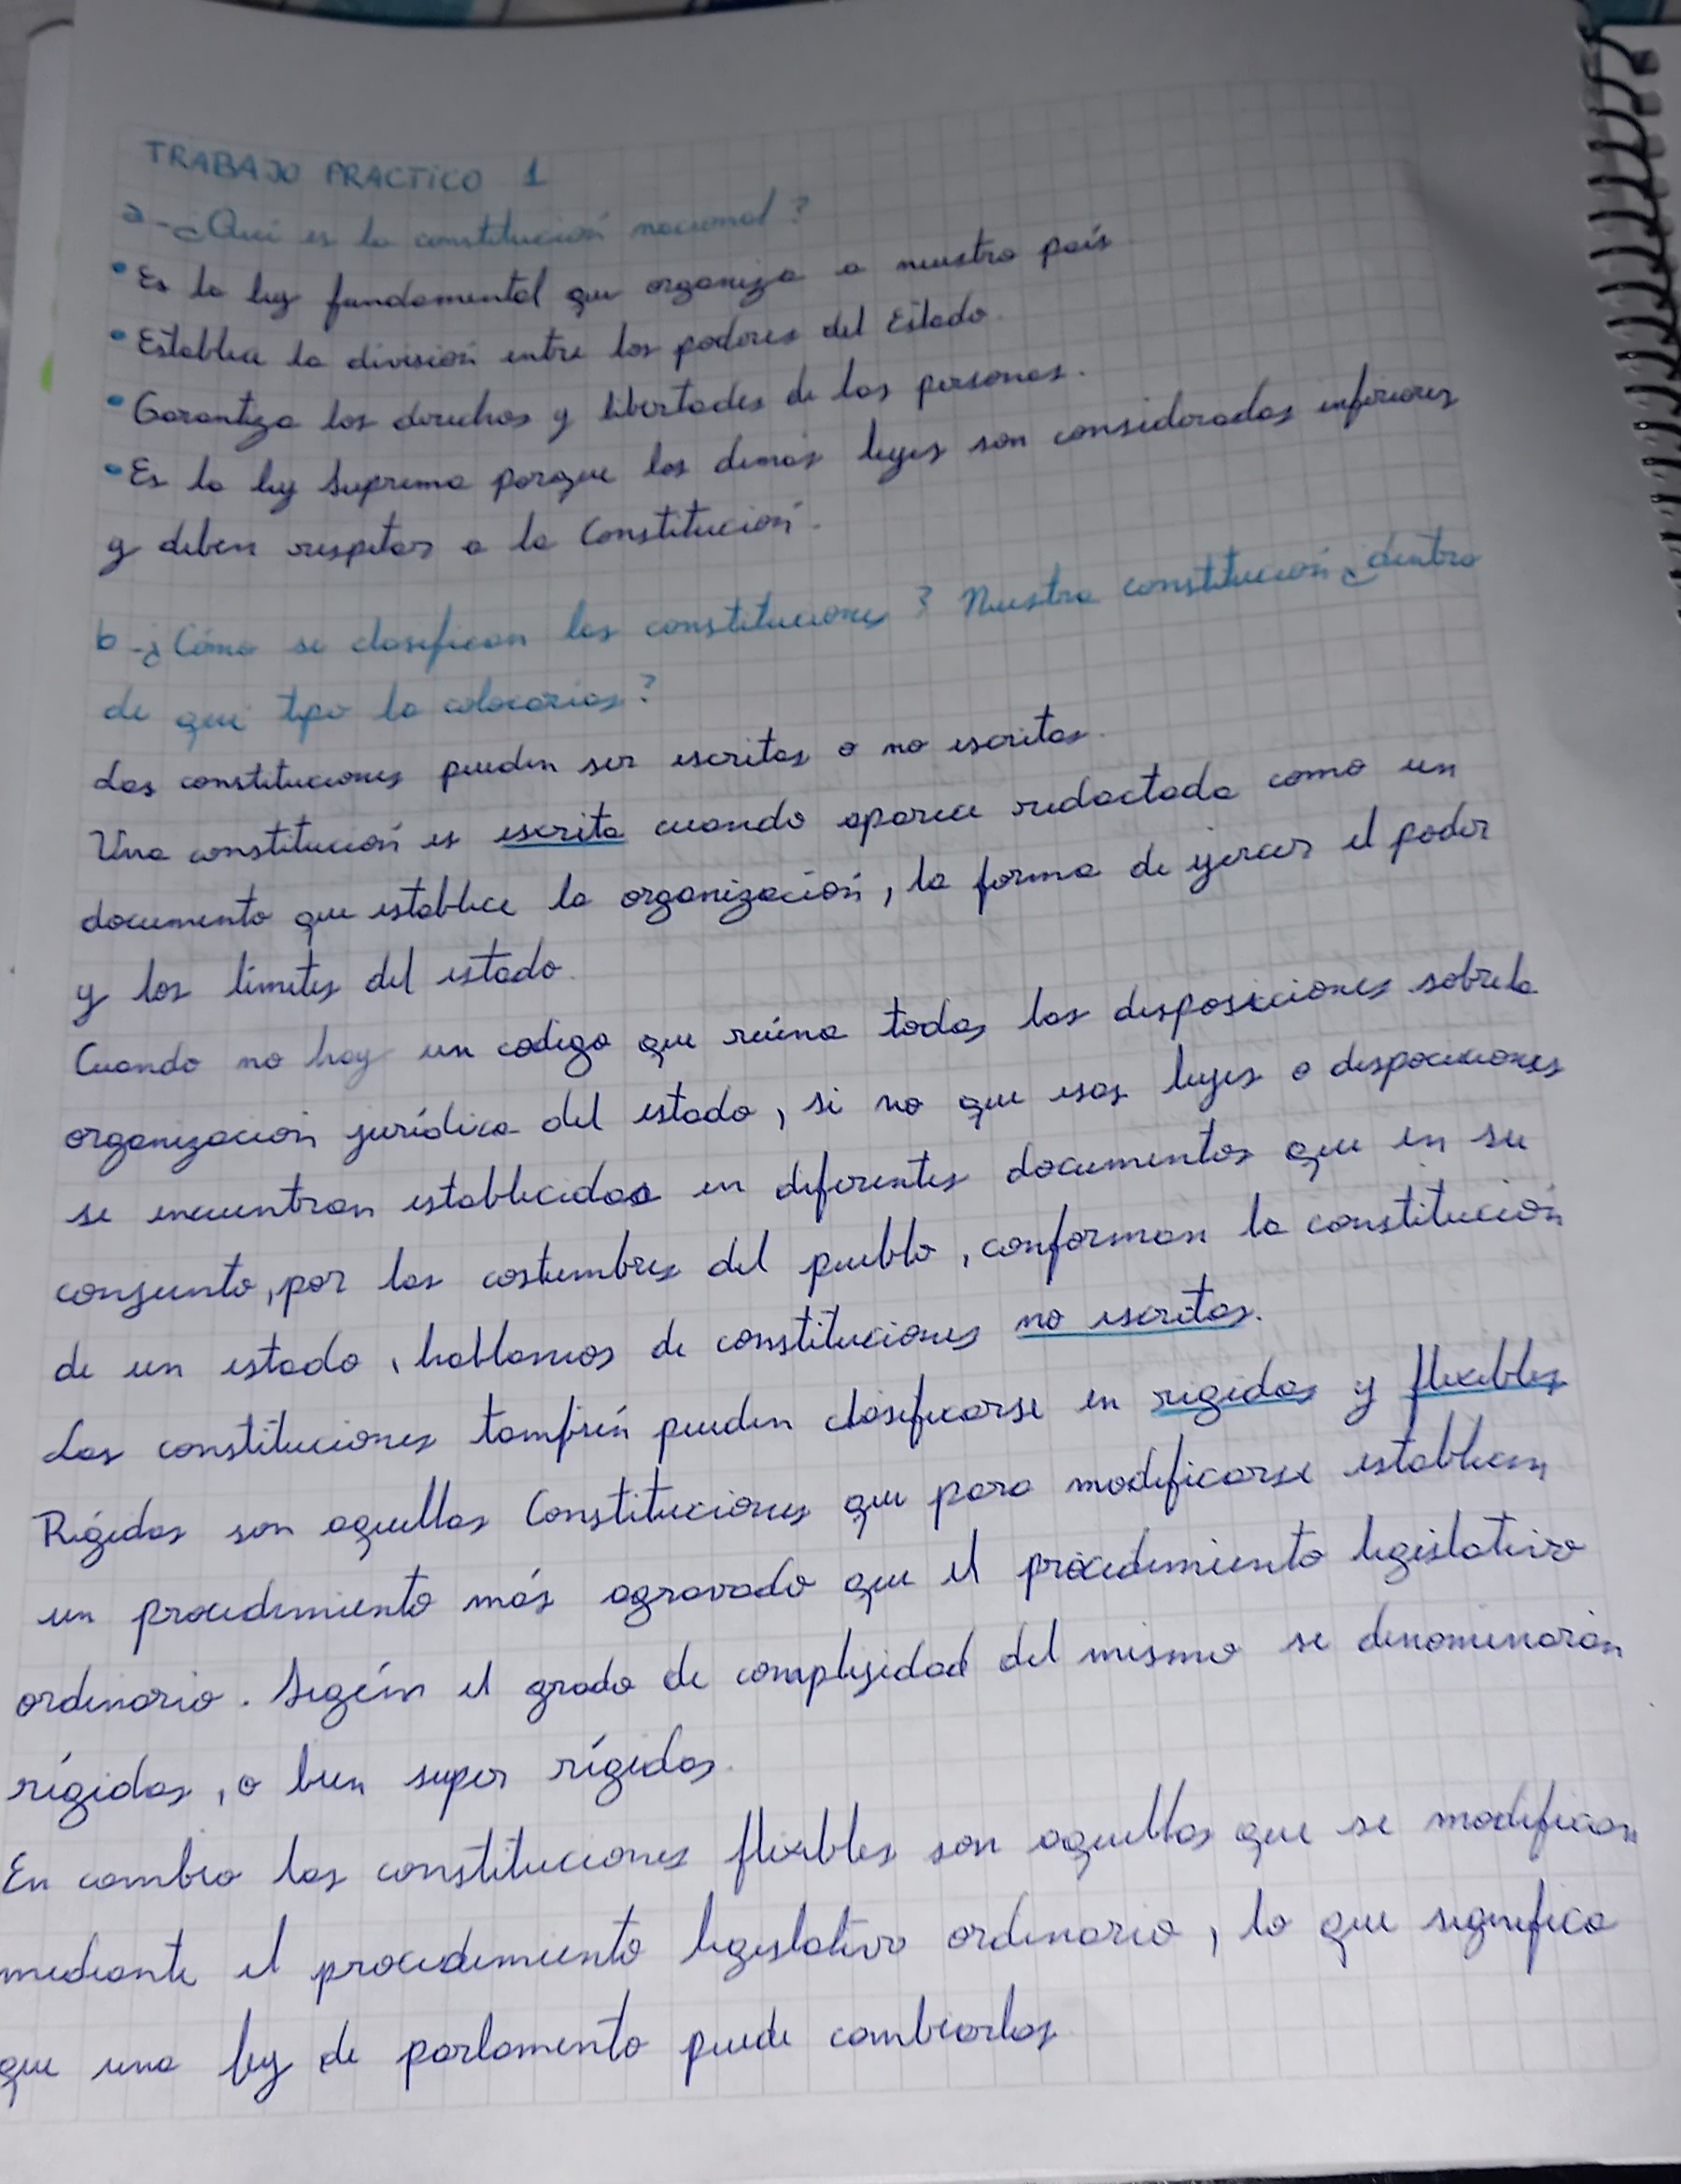 TRABAJO PRACTICO 1
a-¿Qué es la constitución nacional?
• Es la ley fundamental que organiza a nuestro país
• Establece la división entre los poderes del Estado.
• Garantiza los derechos y libertades de las personas.
• Es la ley Suprema porque las demás leyes son consideradas inferiores
y deben respetar a la Constitución.
b-¿Cómo se clasifican las constituciones? Nuestra constitución ¿dentro
de qué tipo la colocarías?
Las constituciones pueden ser escritas o no escritas.
Una constitución es escrita cuando aparece redactada como un
documento que establece la organización, la forma de ejercer el poder
y los límites del estado.
Cuando no hay un codigo que reúna todas las disposiciones sobre la
organización jurídica del estado, si no que esas leyes o disposiciones
se encuentran establecidas en diferentes documentos que en su
conjunto, por las costumbres del pueblo, conforman la constitución
de un estado, hablamos de constituciones no escritas.
Las constituciones también pueden clasificarse en rigidas y flexibles
Rígidas son aquellas Constituciones que para modificarse establecen
un procedimiento más agravado que el procedimiento legislativo
ordinario. Según el grado de complejidad del mismo se denominarán
rígidas, o bien super rígidas.
En cambio las constituciones flexibles son aquellas que se modifican
mediante el procedimiento legislativo ordinario, lo que significa
que una ley de parlamento puede cambiarlas